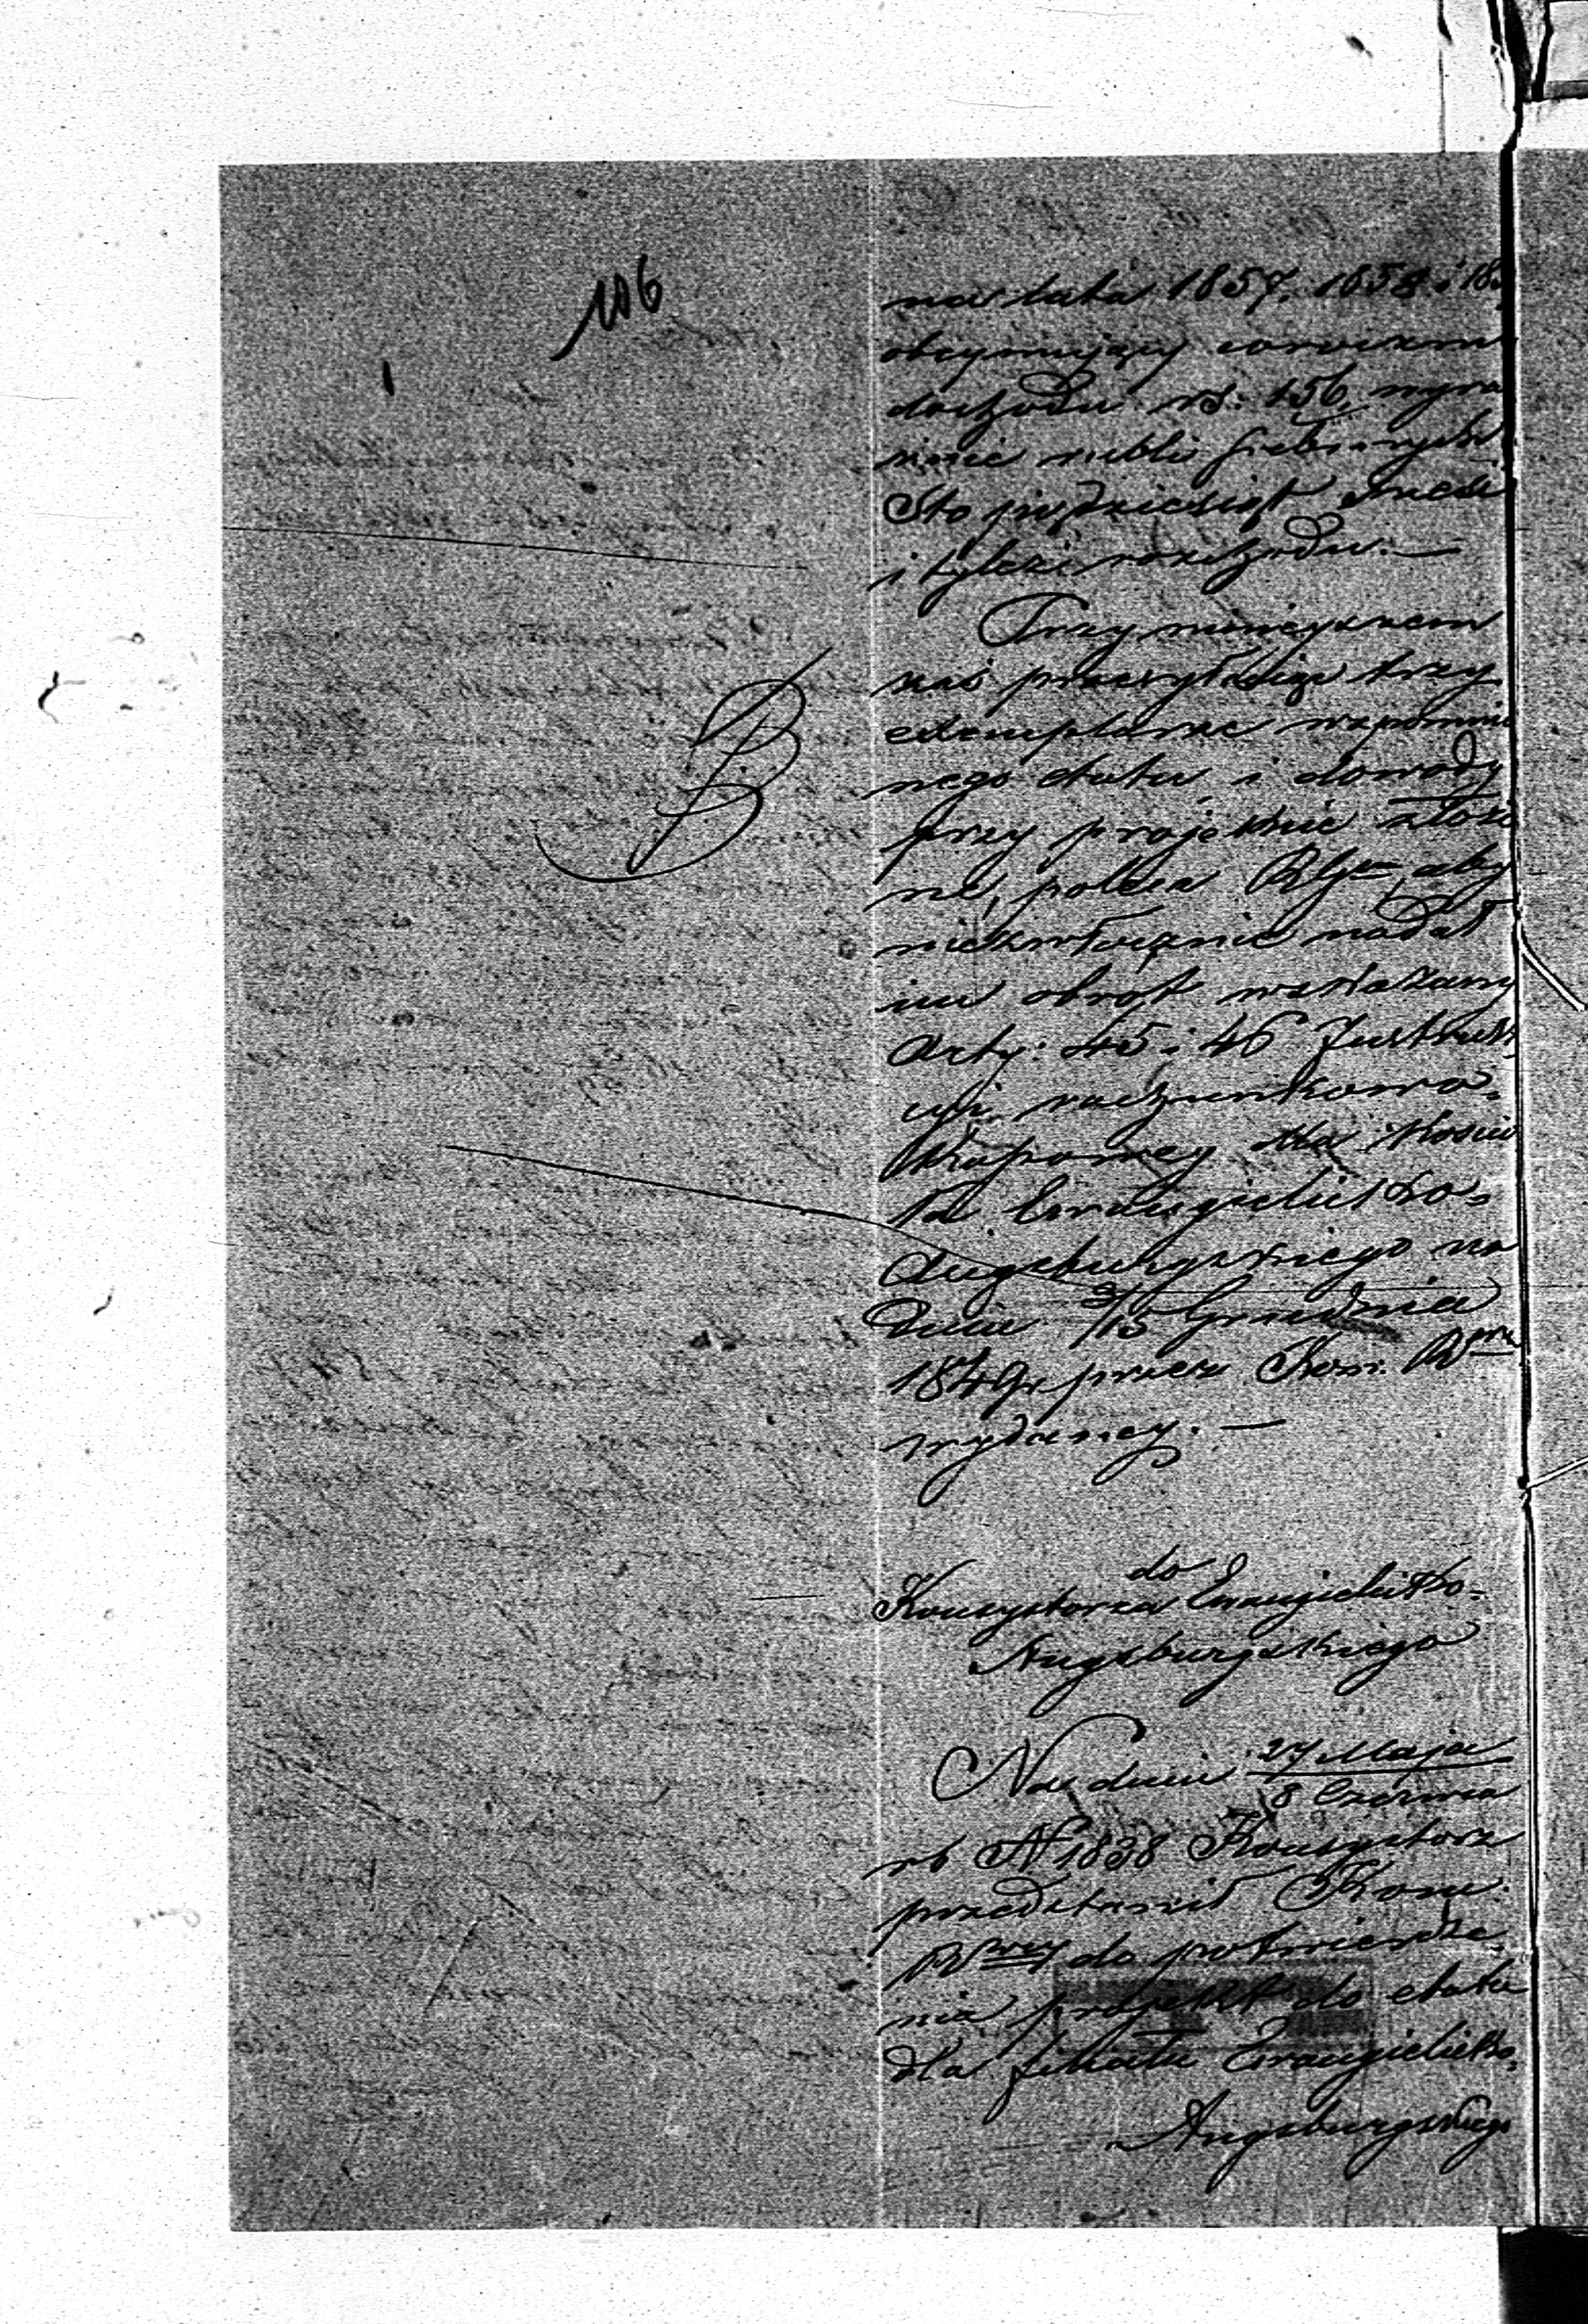 106
na lata 1857. 1858 i 18
obejmujący corocznie
dochodu rs: 156, wyra
źnie rubli srebrnych
Sto pięćdziesiąt sześć
i tyleż rozchodu. —
Przy niniejszem
zaś przesyłając trzy
exemplarze wspomnio
nego etatu i dowody
przy projekcie złożo
ne, poleca Rząd aby
niezwłocznie nadał
im obrot wskazany
Arty: 45 i 46 Instruk
cyi rachunkowo=
Kassowej dla Kościo
ła Ewangielicko=
Augsburgskiego na
dniu 3/15 Grudnia
1849 r. przez Kom: R
wydaney. —
do
Konsystorza Ewangielicko=
Augsburgskiego
Na dniu 27 Maja
8 Czerwca
rb N 1838 Konsystorz
przedstawił Kom:
R do potwierdze
nia projekt do etatu
dla filiału Ewangielicko=
Augsburgskiego